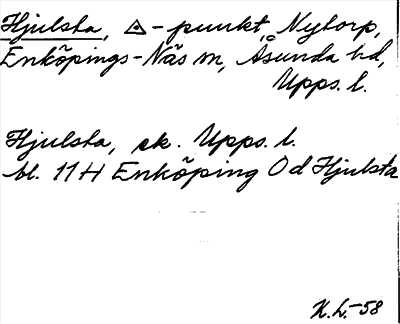 Hjulsta, △-punkt, Nytorp,
Enköpings-Näs sn, Åsunda hd,
Upps. l.
Hjulsta, ek. Upps. l.
bl. 11H Enköping 0d Hjulsta
K.L.-58